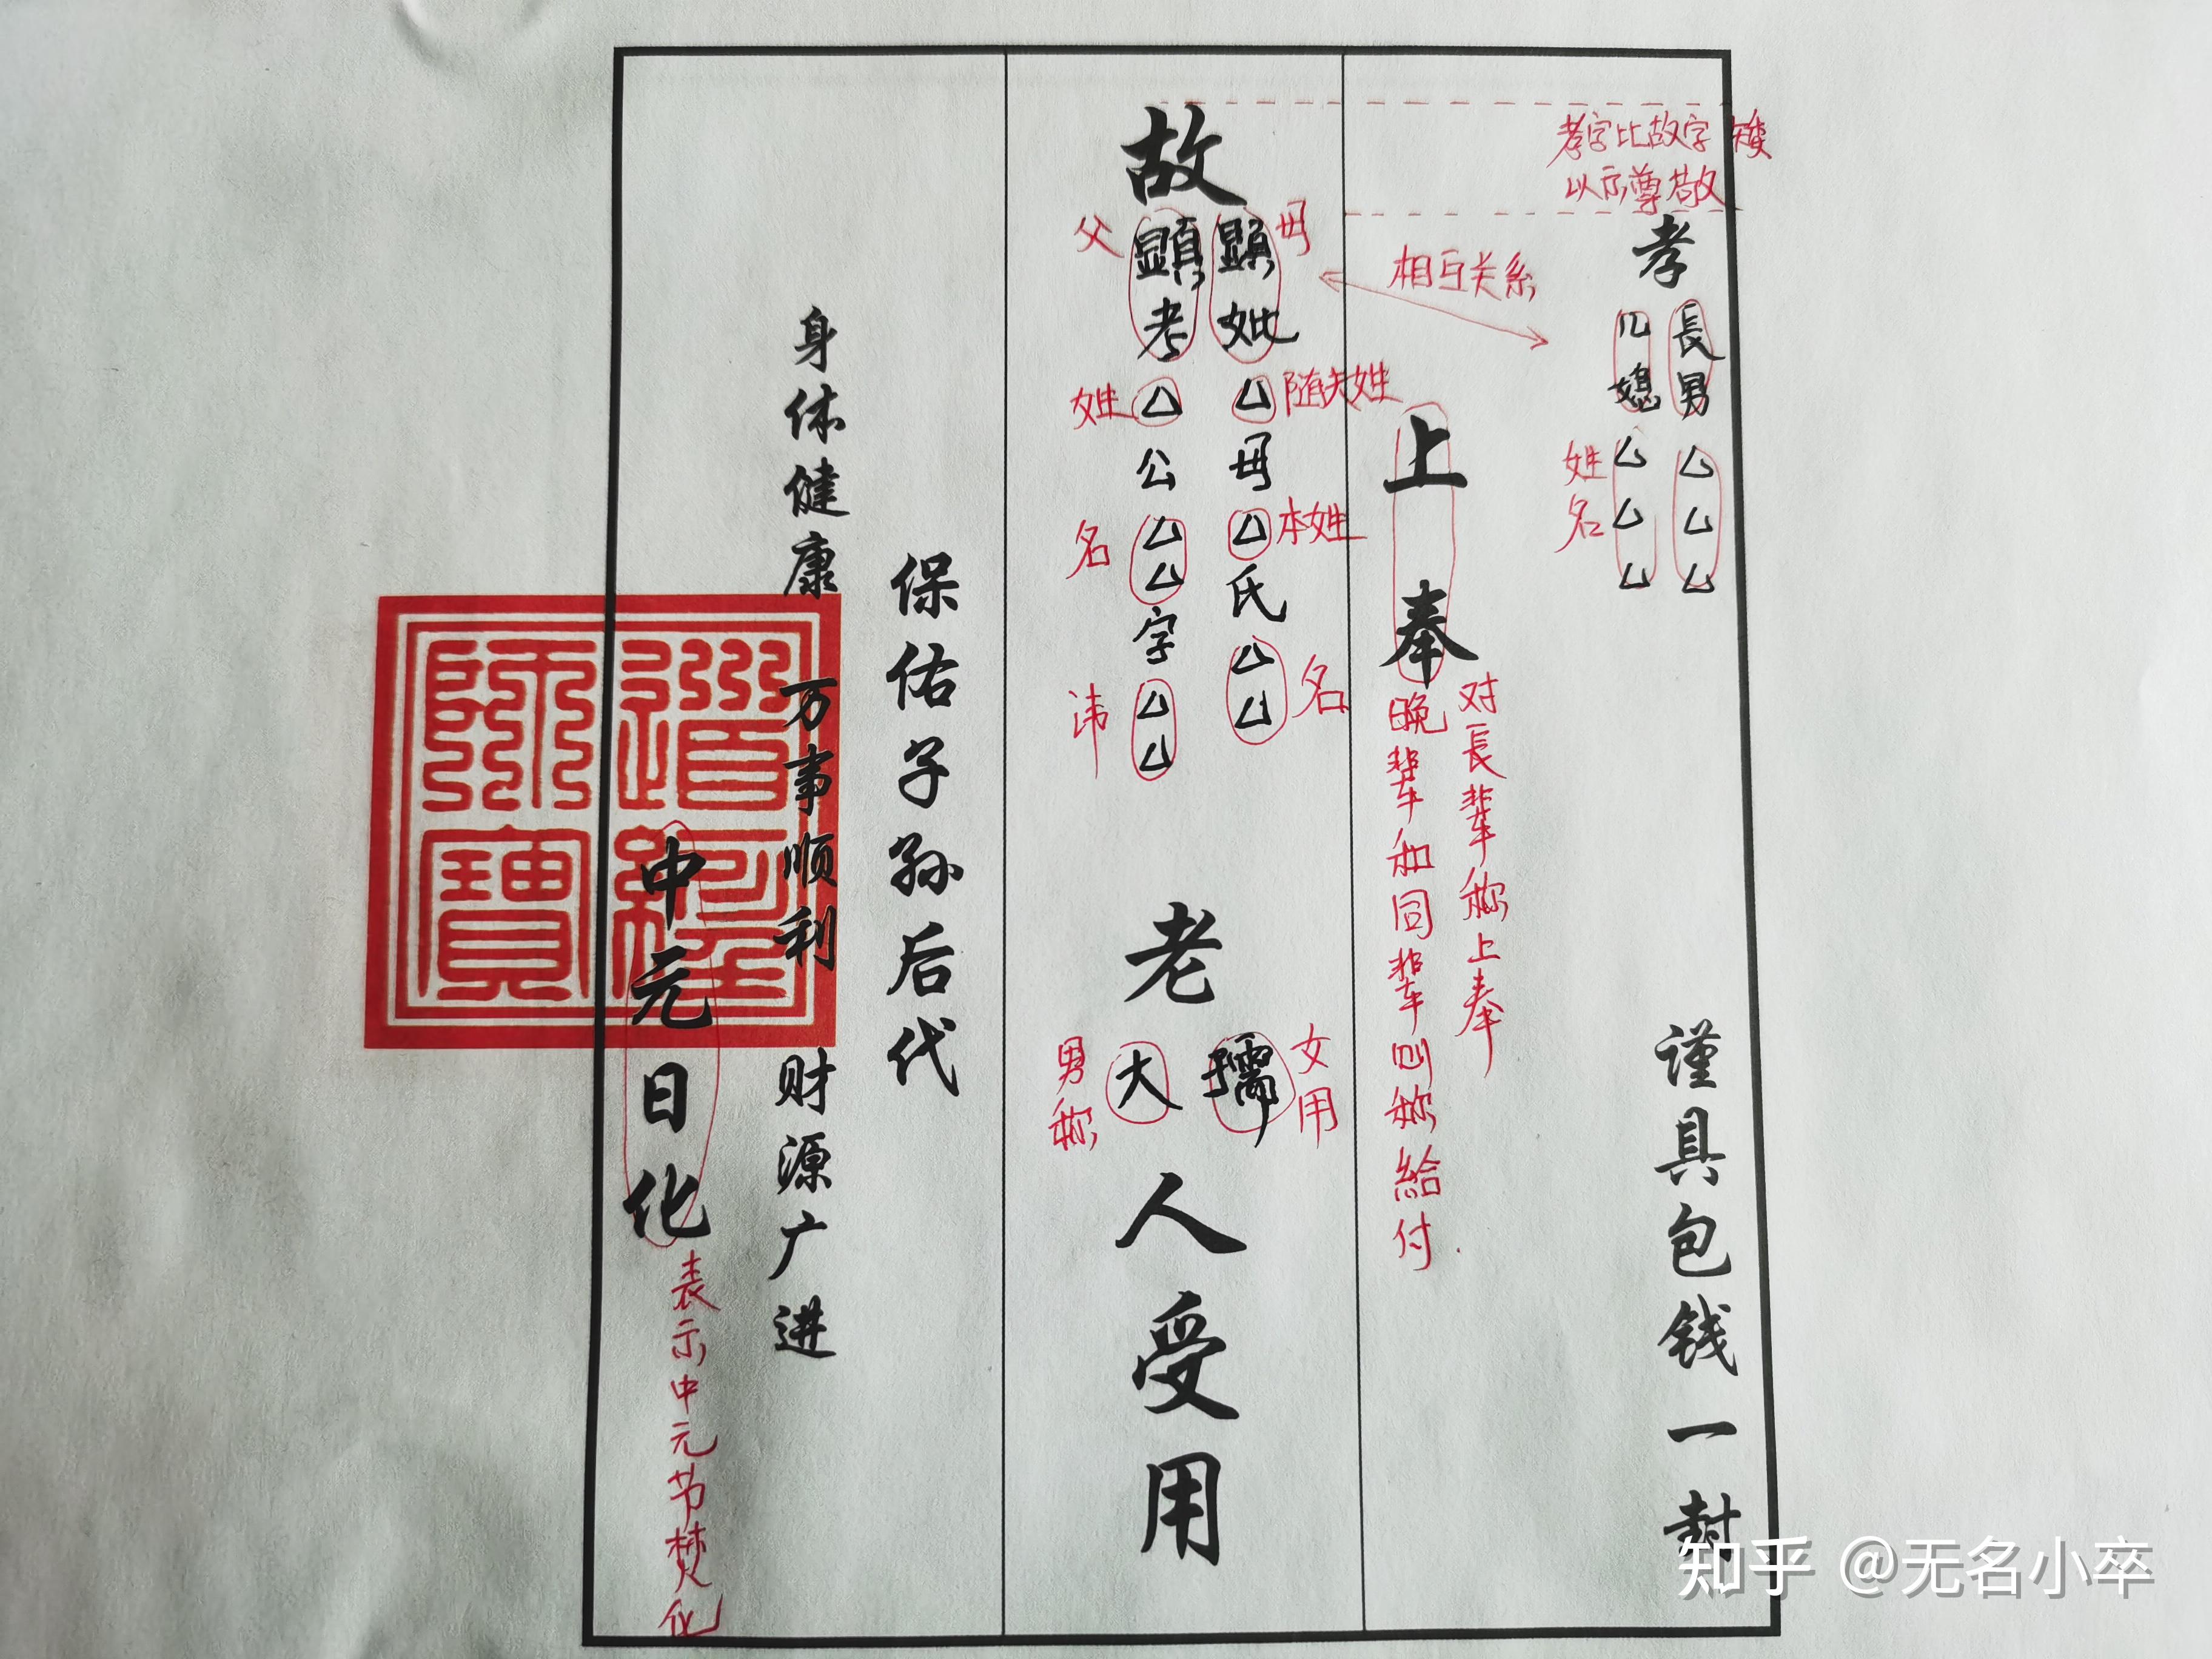 孝字比故字矮
以示尊敬
孝
長男厶厶厶
儿媳厶厶厶
姓名
谨具包钱一封
相互关系
上奉
对長辈称上奉
晚辈和同辈则称給付
故
母
顕妣厶母厶氏厶厶
随夫姓
本姓
名
父
顕考厶公厶厶字厶厶
姓
名
讳
老
孺
女用
大
男称
人受用
保佑子孙后代
身体健康 万事顺利 财源广进
中元日化
表示中元节焚化
道經師寶
知乎 @无名小卒